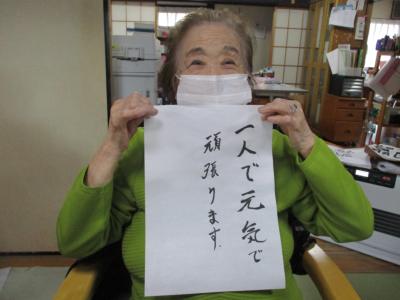 一人で元気で
頑張ります.